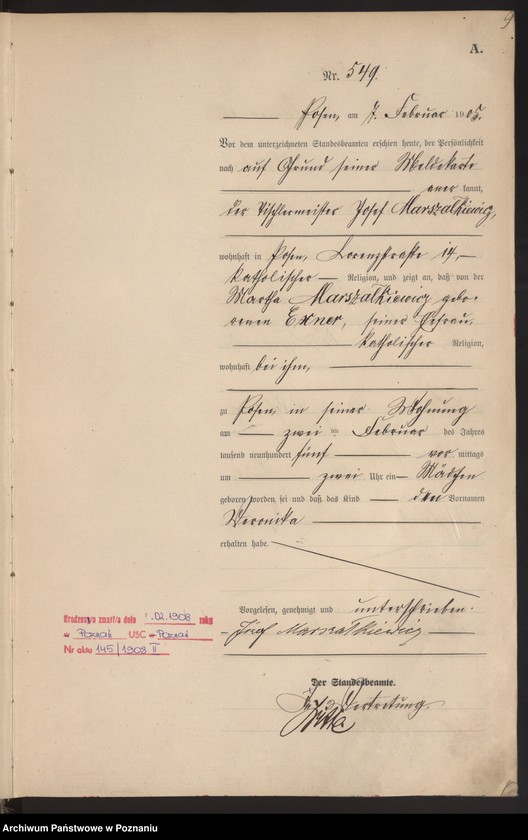 9
A.
Nr. 549.
Posen, am 7. Februar 1905.
Vor dem unterzeichneten Standesbeamten erschien heute, der Persönlichkeit
nach auf Grund seiner Meldekarte
aner kannt,
der Tischlermeister Josef Marszalkiewicz,
wohnhaft in Posen, Lorenzstraße 14,
katholischer Religion, und zeigt an, daß von der
Martha Marszalkiewicz gebo-
renen Exner, seiner Ehefrau,
katholischer Religion,
wohnhaft bei ihm,
zu Posen, in seiner Wohnung
am zwei ten Februar des Jahres
tausend neunhundert fünf vor mittags
um zwei Uhr ein Mädchen
geboren worden sei und daß das Kind den Vornamen
Veronika
erhalten habe.
Vorgelesen, genehmigt und unterschrieben.
Józef Marszalkiewicz
Urodzony zmarł/a dnia .02.1908 roku
w Poznań USC w Poznań
Nr aktu 145/1908 II
Der Standesbeamte.
In Vertretung.
Archiwum Państwowe w Poznaniu